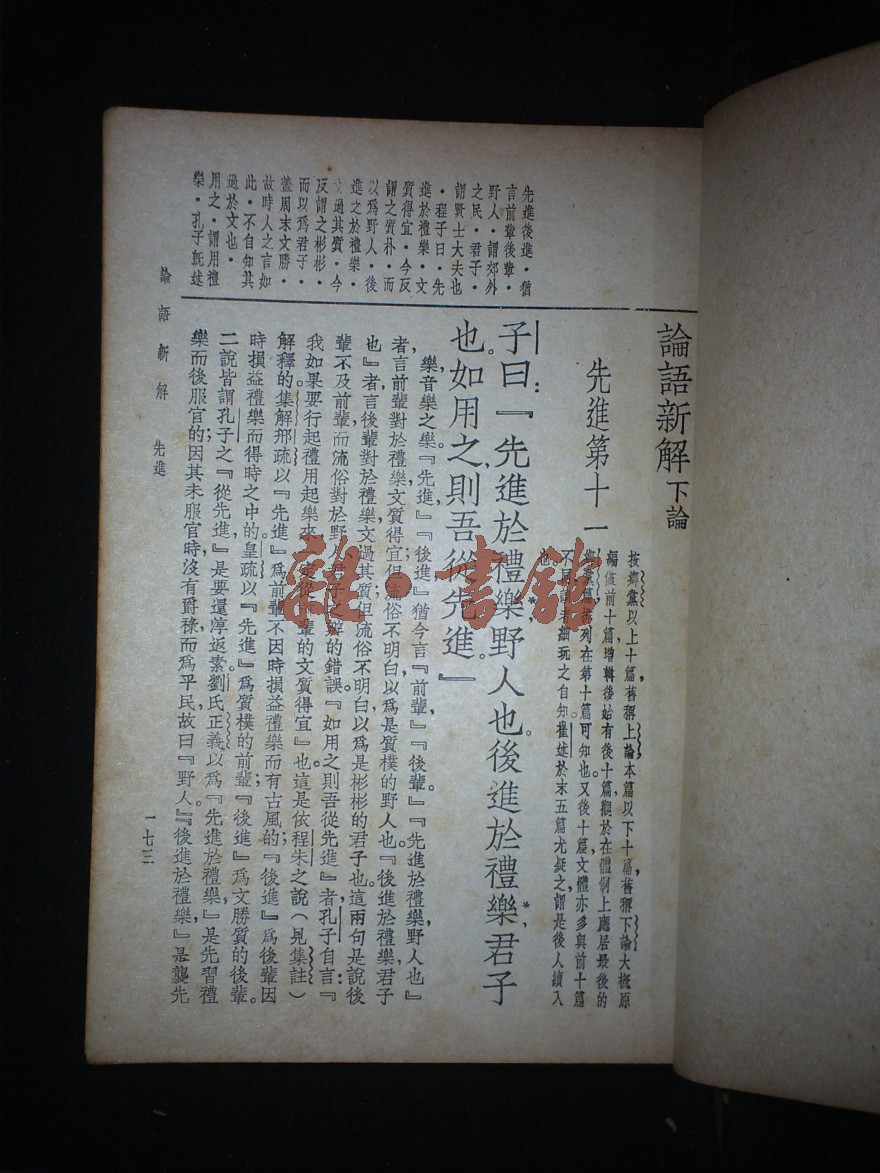 論語新解 下論
先進第十一
按鄉黨以上十篇，舊稱上論本篇以下十篇，舊稱下論大概原
編僅前十篇，增輯後始有後十篇觀於在體制上應居最後的
鄉黨篇，排列在第十篇可知也。又後十篇，文體亦多與前十篇
不同，讀者細玩之自知。崔述於末五篇尤疑之，謂是後人續入
也。
子曰：『先進於禮樂，野人也。後進於禮樂，君子
也。如用之，則吾從先進。』
樂，音樂之樂。『先進』『後進』猶今言『前輩』『後輩。』『先進於禮樂，野人也』
者，言前輩對於禮樂，文質得宜，但流俗不明白，以爲是質樸的野人也。『後進於禮樂，君子
也』者，言後輩對於禮樂，文過其質，但流俗不明白，以爲是彬彬的君子也。這兩句是說後
輩不及前輩，而流俗對於野人、君子之辨的錯誤。『如用之，則吾從先進』者，孔子自言：『
我如果要行起禮用起樂來，定從前輩的文質得宜』也。這是依程朱之說（見集註）
解釋的。集解邢疏以『先進』爲前輩不因時損益禮樂而有古風的；『後進』爲後輩因
時損益禮樂而得時之中的。皇疏以『先進』爲質樸的前輩；『後進』爲文勝質的後輩。
二說皆謂孔子之『從先進，』是要還淳返素。劉氏正義以爲『先進於禮樂』是先習禮
樂而後服官的；因其未服官時，沒有爵祿而爲平民，故曰『野人。』『後進於禮樂，』是襲先
先進後進・猶
言前輩後輩・
野人・謂郊外
之民・君子・
謂賢士大夫也
・程子曰・先
進於禮樂・文
質得宜・今反
謂之質朴・而
以爲野人・後
進之於禮樂・
文過其質・今
反謂之彬彬・
而以爲君子・
蓋周末文勝・
故時人之言如
此・不自知其
過於文也・
用之・謂用禮
樂・孔子既述
論語新解 先進
一七三
雜・書館